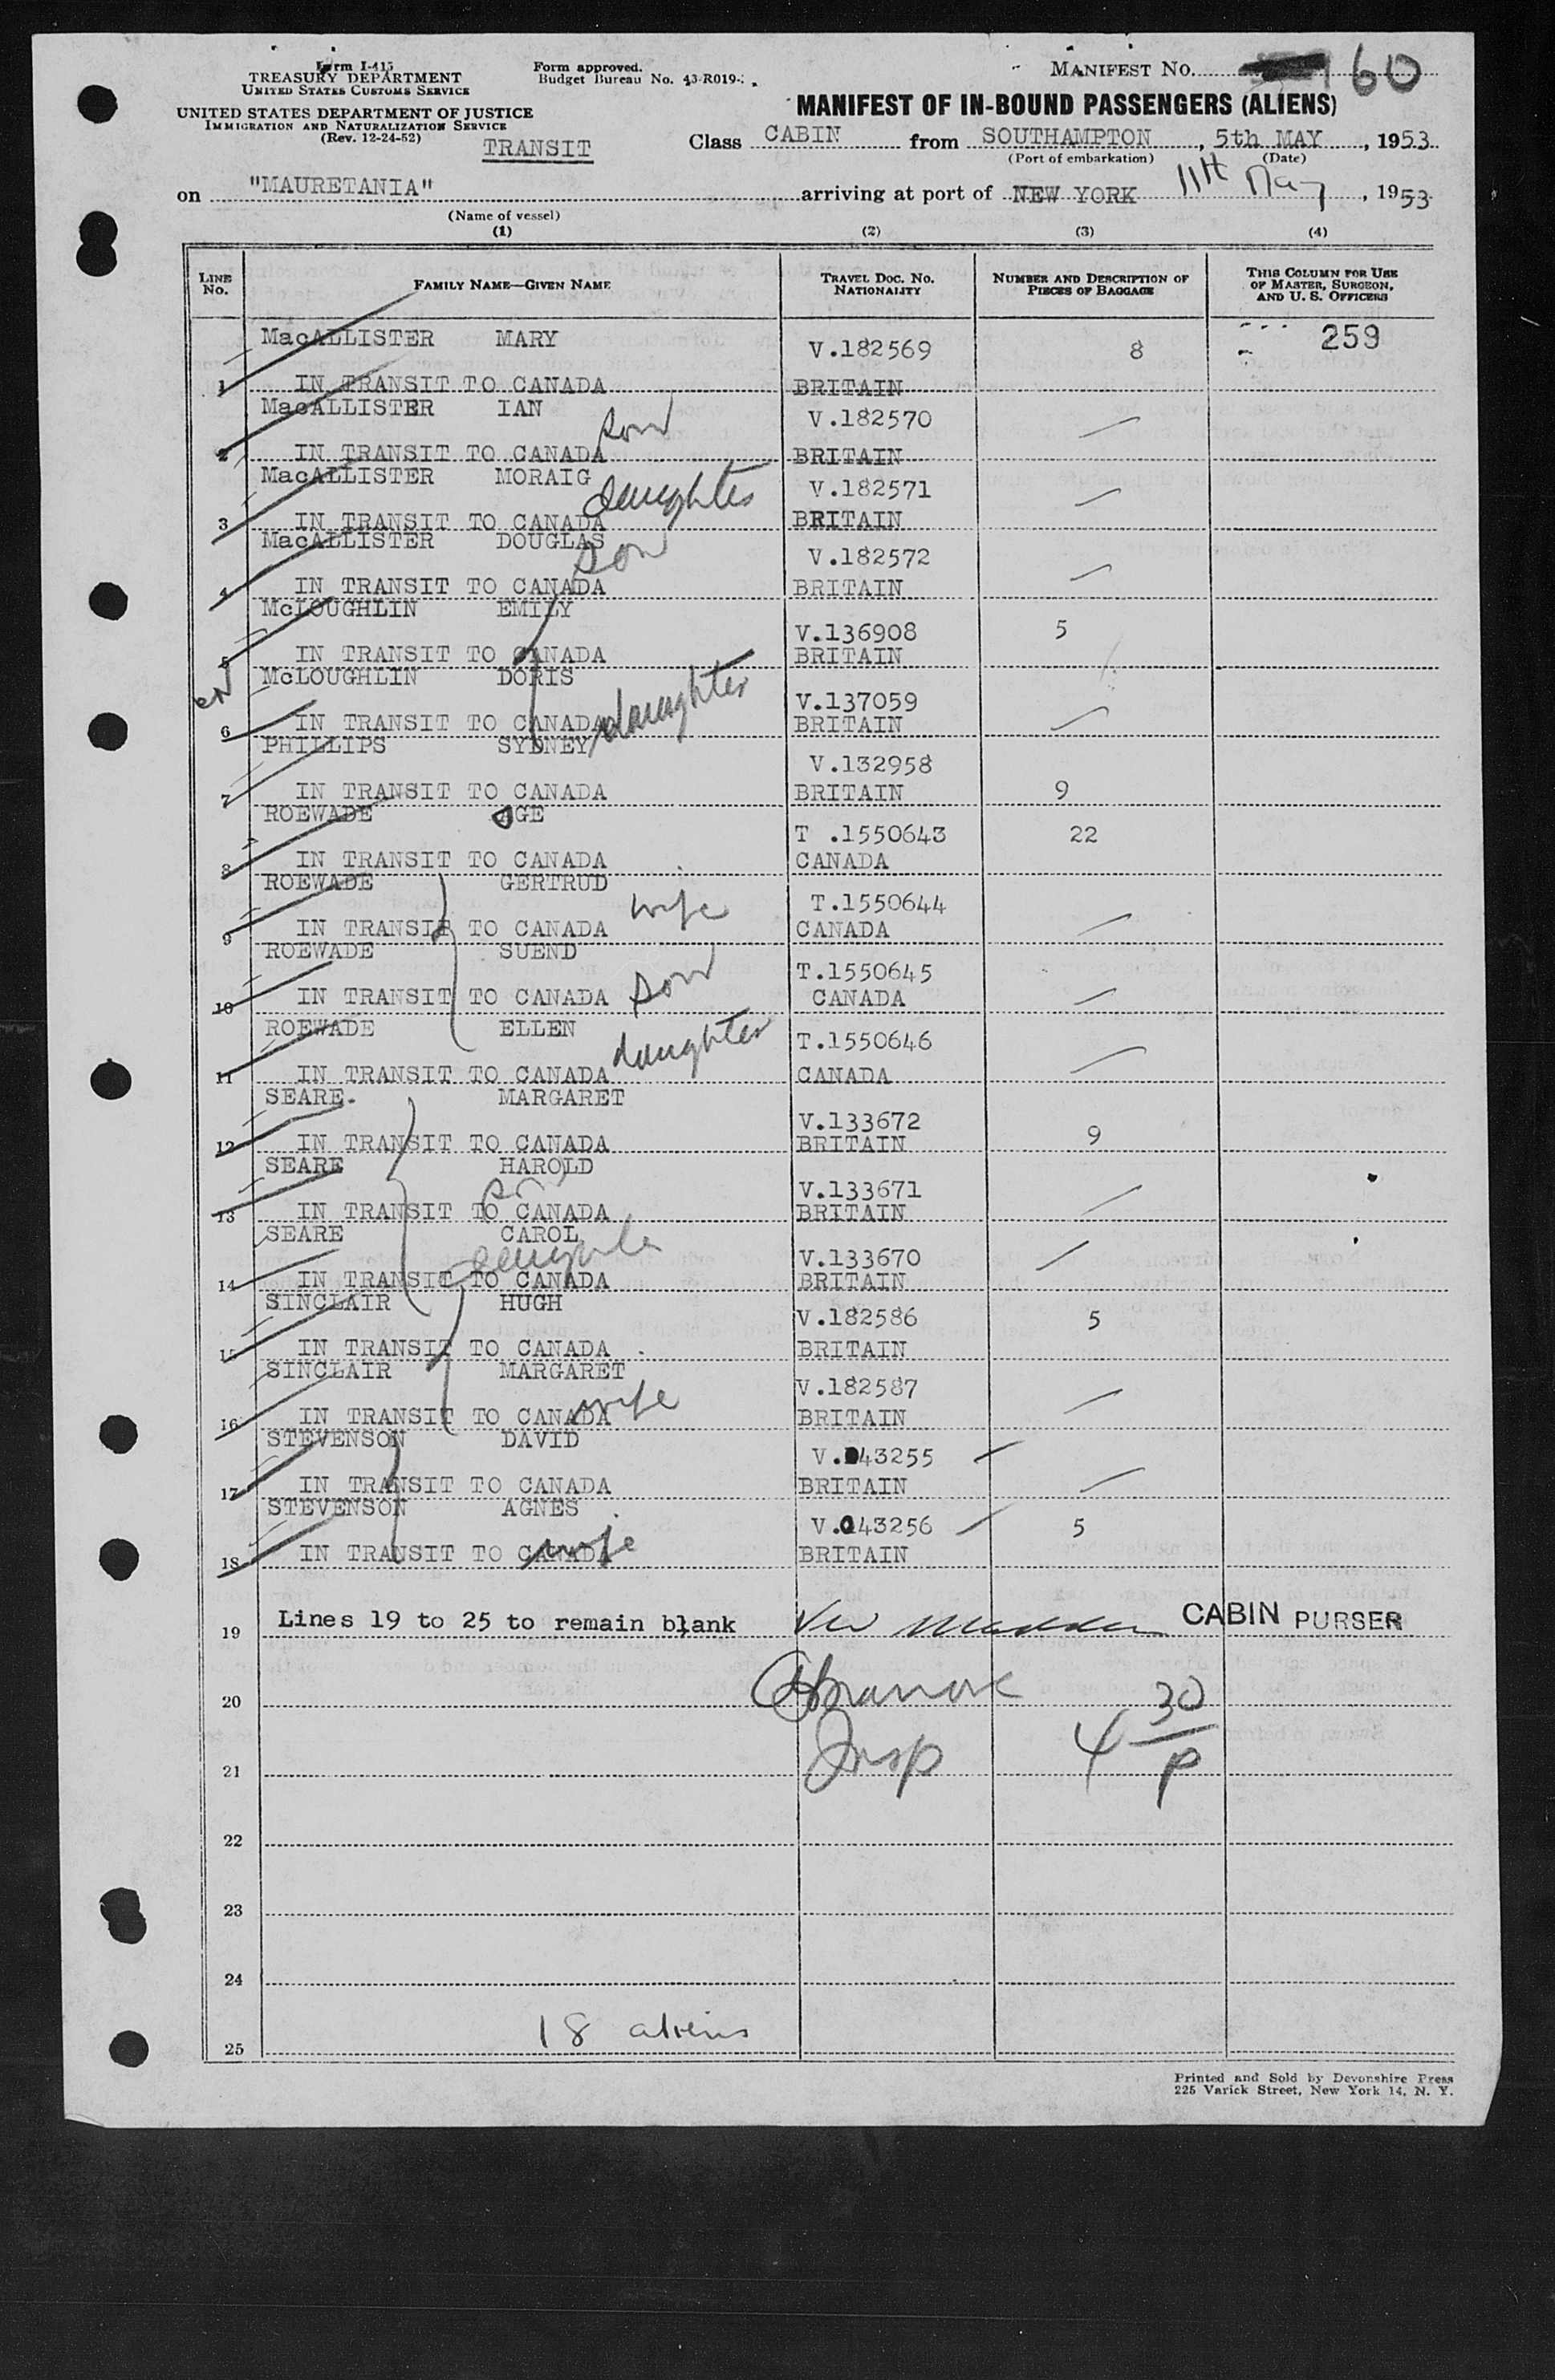 Form I-415
TREASURY DEPARTMENT
UNITED STATES CUSTOMS SERVICE
UNITED STATES DEPARTMENT OF JUSTICE
IMMIGRATION AND NATURALIZATION SERVICE
(Rev. 12-24-52)
TRANSIT
Form approved.
Budget Bureau No. 43-R019-
MANIFEST NO. 160
MANIFEST OF IN-BOUND PASSENGERS (ALIENS)
Class CABIN from SOUTHAMPTON, 5th MAY, 1953
(Port of embarkation) (Date)
on "MAURETANIA" arriving at port of NEW YORK 11th May, 1953
(Name of vessel)
(1) (2) (3) (4)
LINE No. FAMILY NAME—GIVEN NAME TRAVEL DOC. NO. NATIONALITY NUMBER AND DESCRIPTION OF PIECES OF BAGGAGE THIS COLUMN FOR USE OF MASTER, SURGEON, AND U. S. OFFICERS
MacALLISTER MARY V.182569 8 259
1 IN TRANSIT TO CANADA BRITAIN
MacALLISTER IAN son V.182570
2 IN TRANSIT TO CANADA BRITAIN
MacALLISTER MORAIG daughter V.182571
3 IN TRANSIT TO CANADA BRITAIN
MacALLISTER DOUGLAS son V.182572
4 IN TRANSIT TO CANADA BRITAIN
McLOUGHLIN EMILY V.136908 5
5 IN TRANSIT TO CANADA BRITAIN
McLOUGHLIN DORIS daughter V.137059
6 IN TRANSIT TO CANADA BRITAIN
PHILLIPS SYDNEY V.132958
7 IN TRANSIT TO CANADA BRITAIN 9
ROEWADE OGE T .1550643 22
8 IN TRANSIT TO CANADA CANADA
ROEWADE GERTRUD wife T.1550644
9 IN TRANSIT TO CANADA CANADA
ROEWADE SUEND son T.1550645
10 IN TRANSIT TO CANADA CANADA
ROEWADE ELLEN daughter T.1550646
11 IN TRANSIT TO CANADA CANADA
SEARE. MARGARET V.133672 9
12 IN TRANSIT TO CANADA BRITAIN
SEARE HAROLD V.133671
13 IN TRANSIT TO CANADA BRITAIN
SEARE CAROL V.133670
14 IN TRANSIT TO CANADA BRITAIN
SINCLAIR HUGH V.182586 5
15 IN TRANSIT TO CANADA BRITAIN
SINCLAIR MARGARET wife V.182587
16 IN TRANSIT TO CANADA BRITAIN
STEVENSON DAVID V.043255
17 IN TRANSIT TO CANADA BRITAIN
STEVENSON AGNES V.043256 5
18 IN TRANSIT TO CANADA wife BRITAIN
19 Lines 19 to 25 to remain blank CABIN PURSER
20
21 Insp 4 30/p
22
23
24
25 18 aliens
Printed and Sold by Devonshire Press
225 Varick Street, New York 14, N. Y.